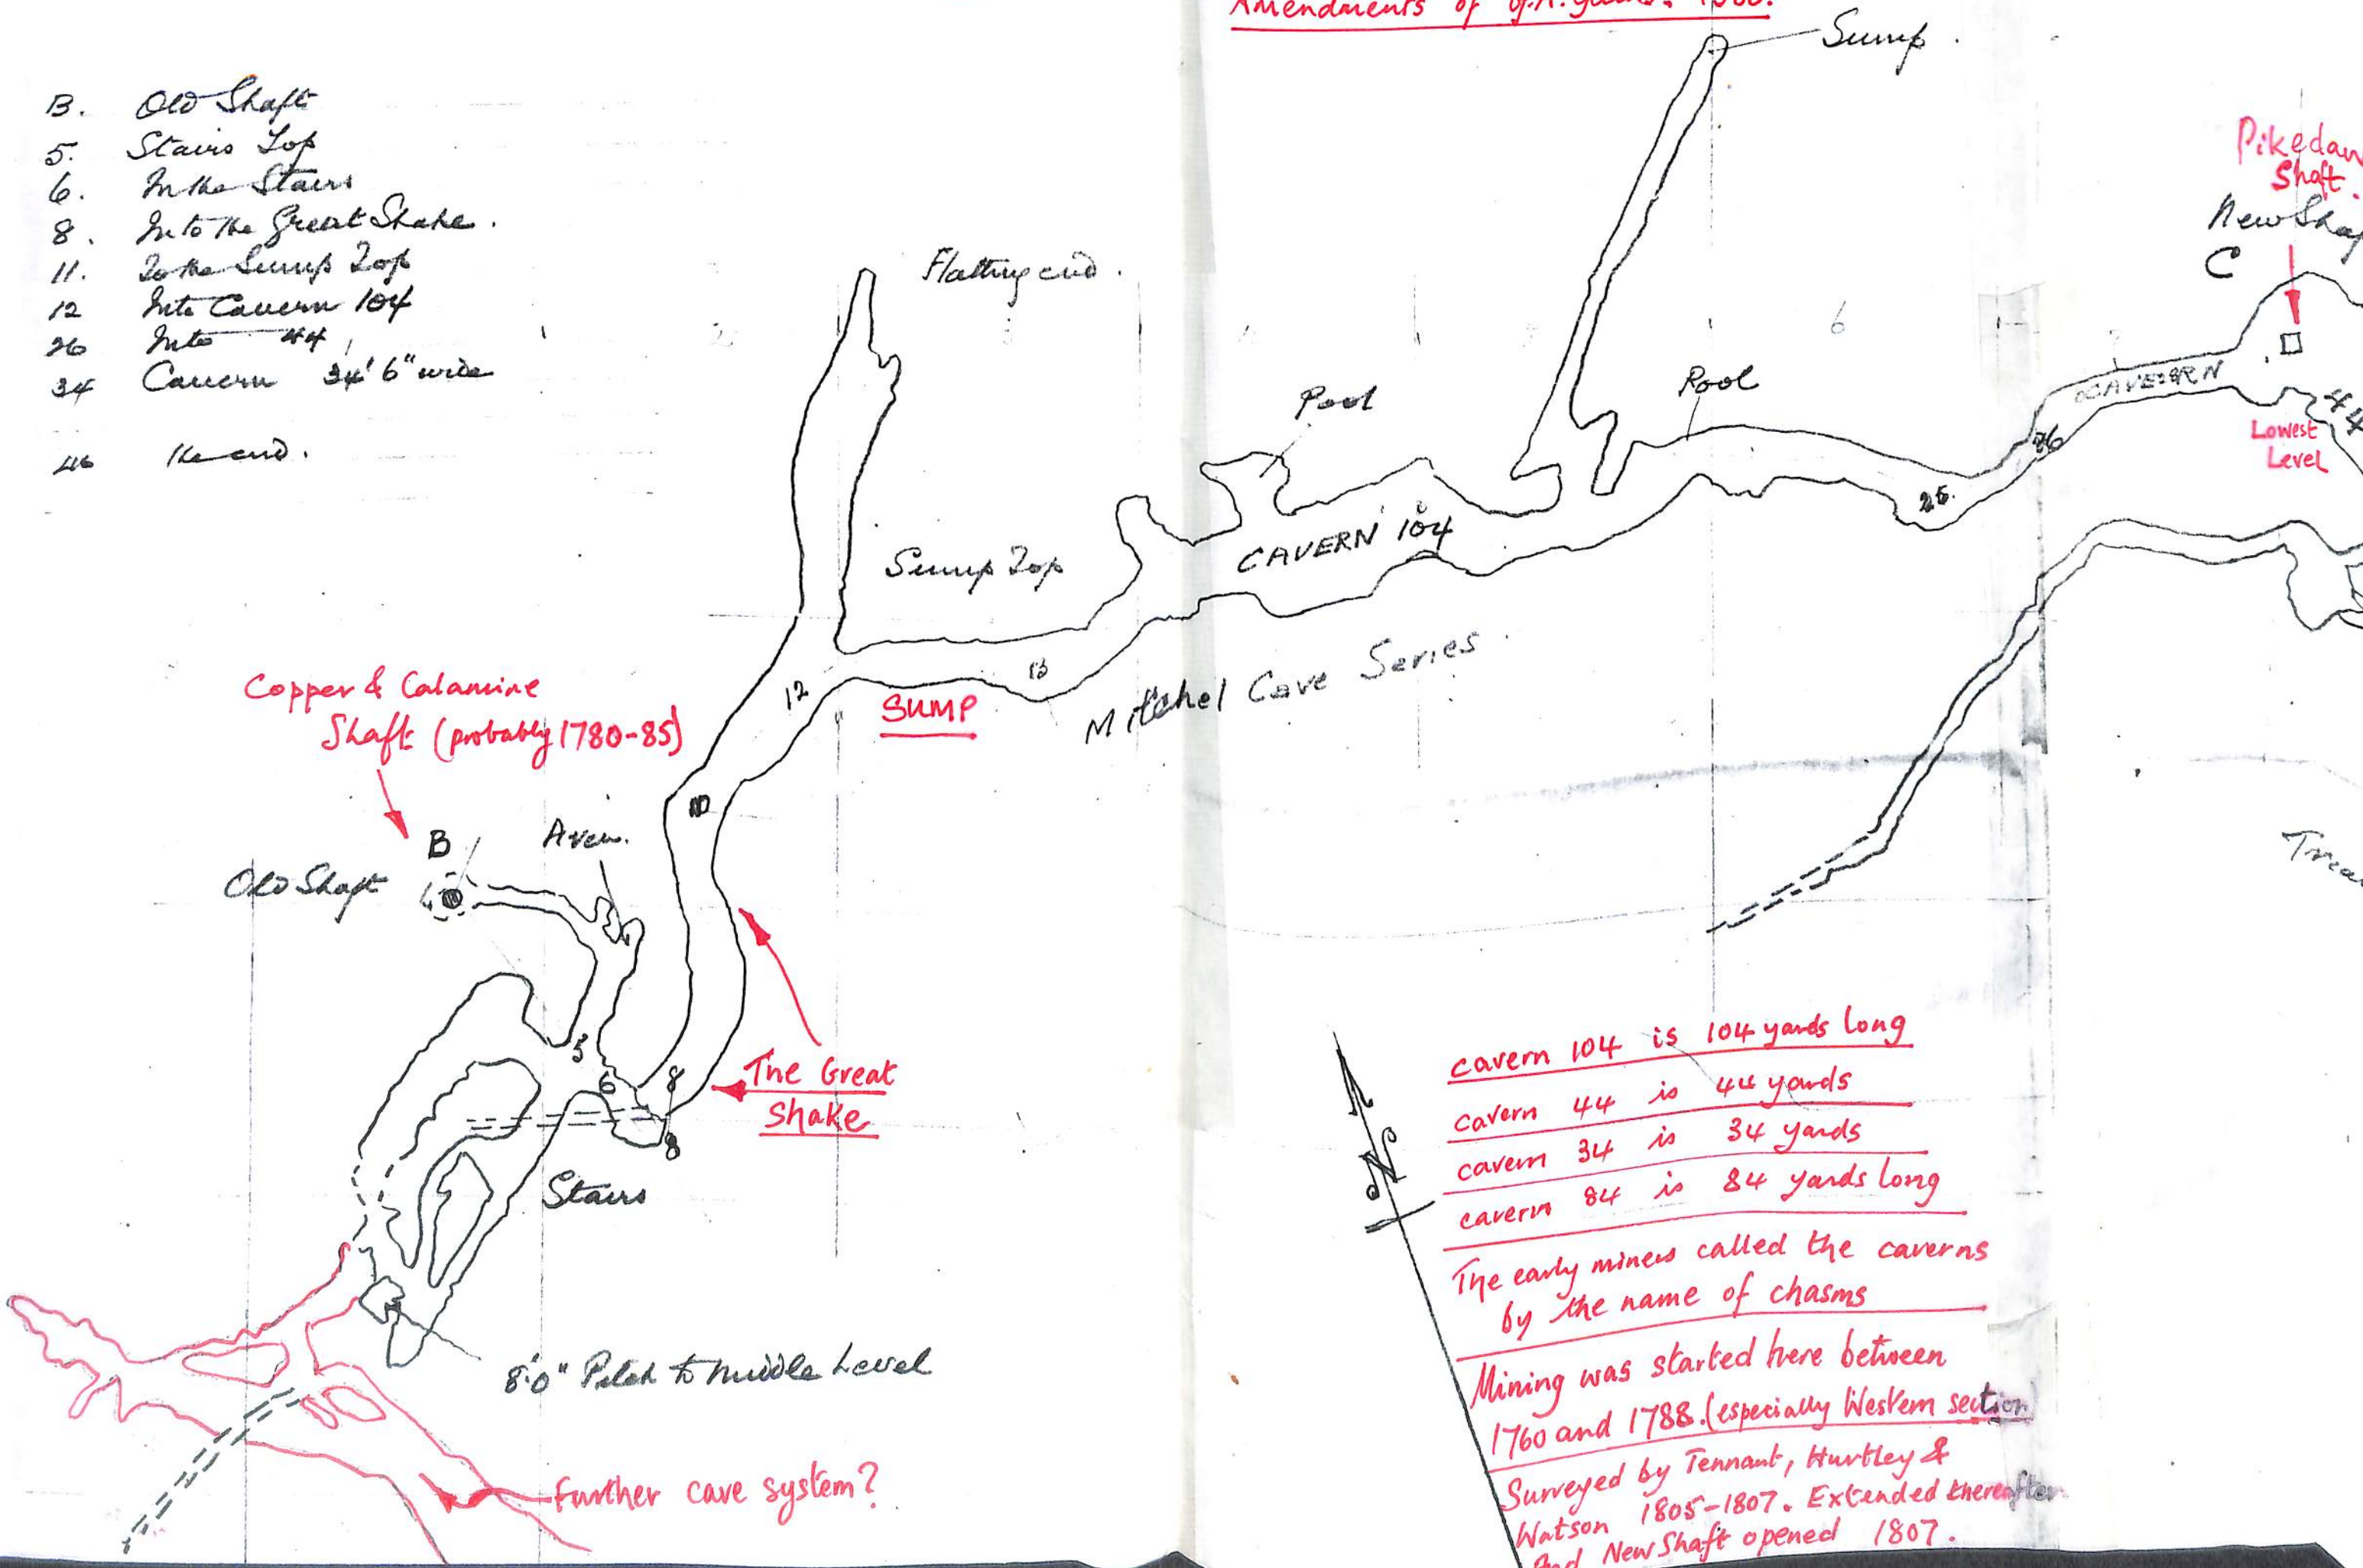 Amendments of
B. Old Shaft
5. Stairs Top
6. In the Stairs
8. Into the Great Shake.
11. To the Sump Top
12 Into Cavern 104
26 Into 44
34 Cavern 34' 6" wide
46 The end.
Sump.
Pikedaw
Shaft.
New Shaf
C
Flatting end.
Pool
Pool
6
CAVERN
44
26
Lowest
Level
25.
CAVERN 104
Sump Top
13
Mitchel Cave Series.
12
SUMP
Copper & Calamine
Shaft (probably 1780-85)
10
B
Aven.
Old Shaft
5
6
8
8
The Great
Shake
Stairs
8'0" Pitch to Middle Level
Further cave system?
N
cavern 104 is 104 yards long
cavern 44 is 44 yards
cavern 34 is 34 yards
cavern 84 is 84 yards long
The early miners called the caverns
by the name of chasms
Mining was started here between
1760 and 1788. (especially Western section)
Surveyed by Tennant, Hurtley &
Watson 1805-1807. Extended thereafter
And New Shaft opened 1807.